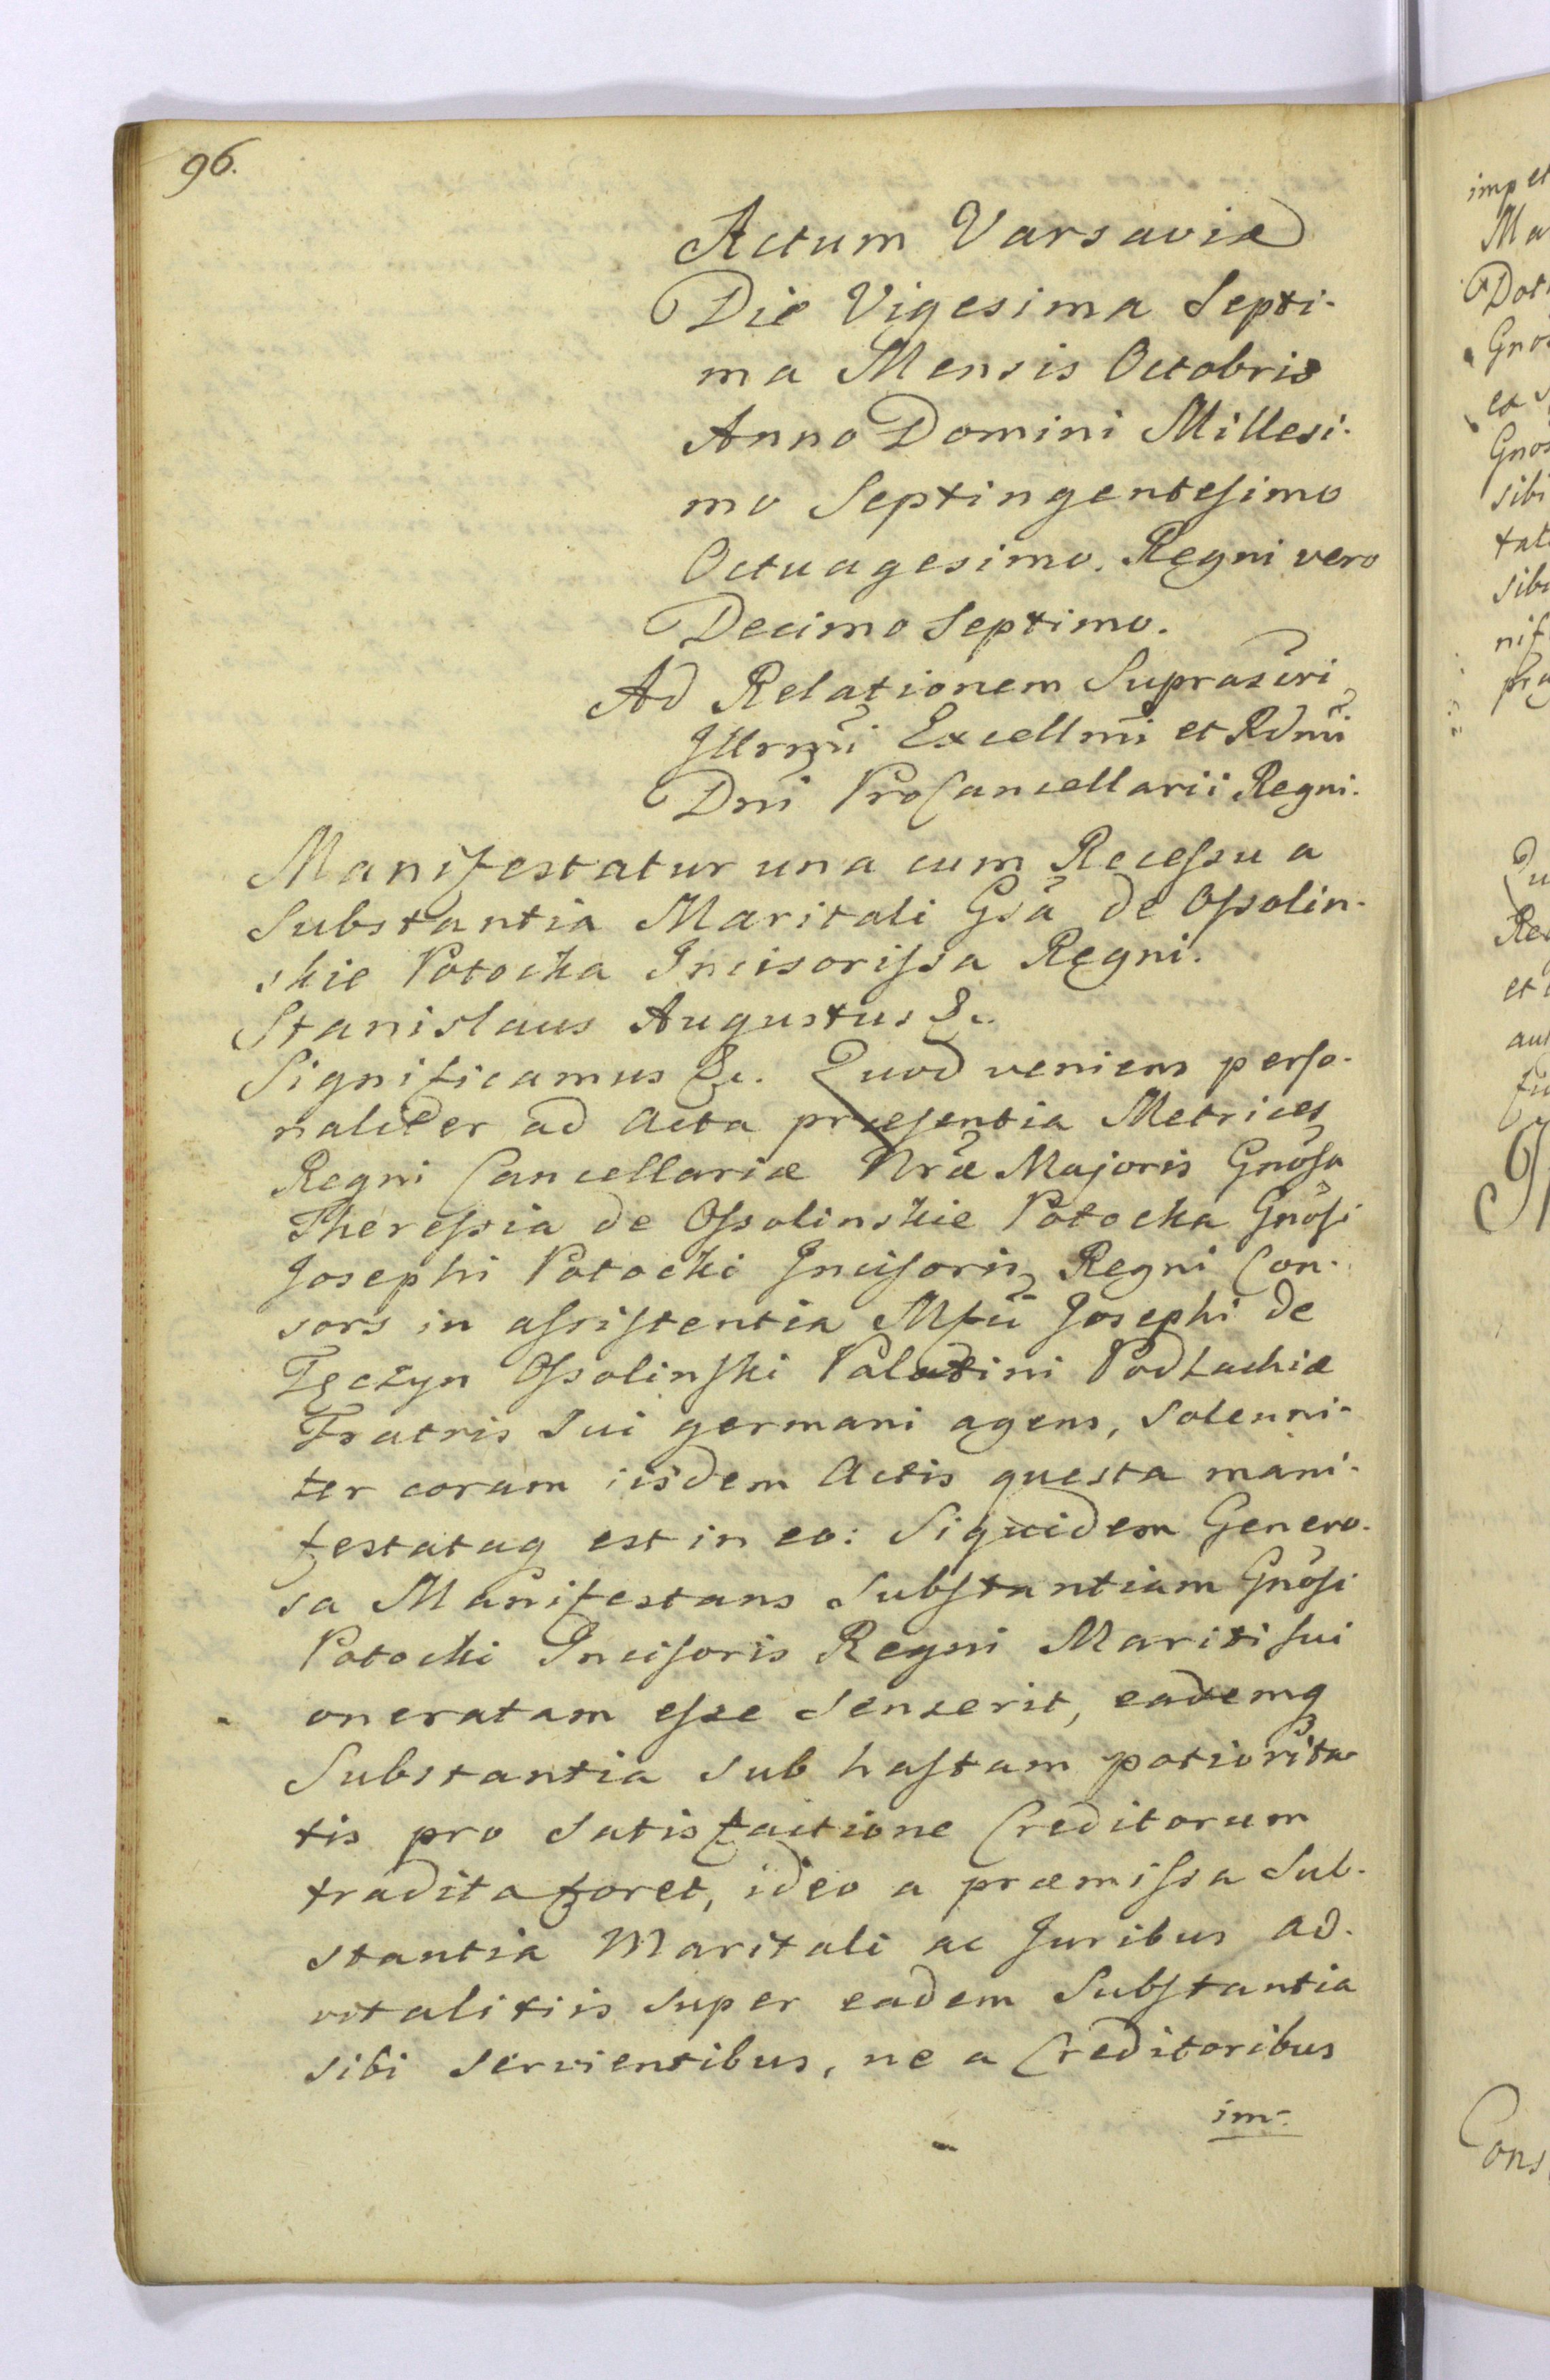 96.
Actum Varsaviæ
Die Vigesima Septi-
ma Mensis Octobris
Anno Domini Millesi-
mo Septingentesimo
Octuagesimo. Regni vero
Decimo Septimo.
Ad Relationem Suprascri
Illrmi Excellmi et Rdmi
Dni ProCancellarii Regni.
Manifestatur una cum Recessu a
Substantia Maritali Gsa de Ossolin-
skie Potocka Incisorissa Regni.
Stanislaus Augustus &c.
Significamus &c. Quod veniens perso-
naliter ad Acta præsentia Metrices
Regni Cancellariæ Nræ Majoris Gnosa
Theressia de Ossolinskie Potocka Gnosi
Josephi Potocki Incisoris Regni Con-
sors in assistentia Mfci Josephi de
Tęczyn Ossolinski Palatini Podlachiæ
Fratris Sui germani agens, Solenni-
ter coram iisdem Actis questa mani-
festataq est in eo: Siquidem Genero-
sa Manifestans Substantiam Gnosi
Potocki Incisoris Regni Mariti sui
oneratam esse Senserit, eademq
Substantia Sub hastam potiorita-
tis pro Satisfactione Creditorum
tradita foret, ideo a præmissa Sub-
stantia Maritali ac Juribus ad-
vitalitiis super eadem Substantia
sibi Servientibus, ne a Creditoribus
im-
impet
Ma
Dot
Gnos
et s
Gnos
sibi
tat
sibi
nif
Qu
Re
et
aut
Cons